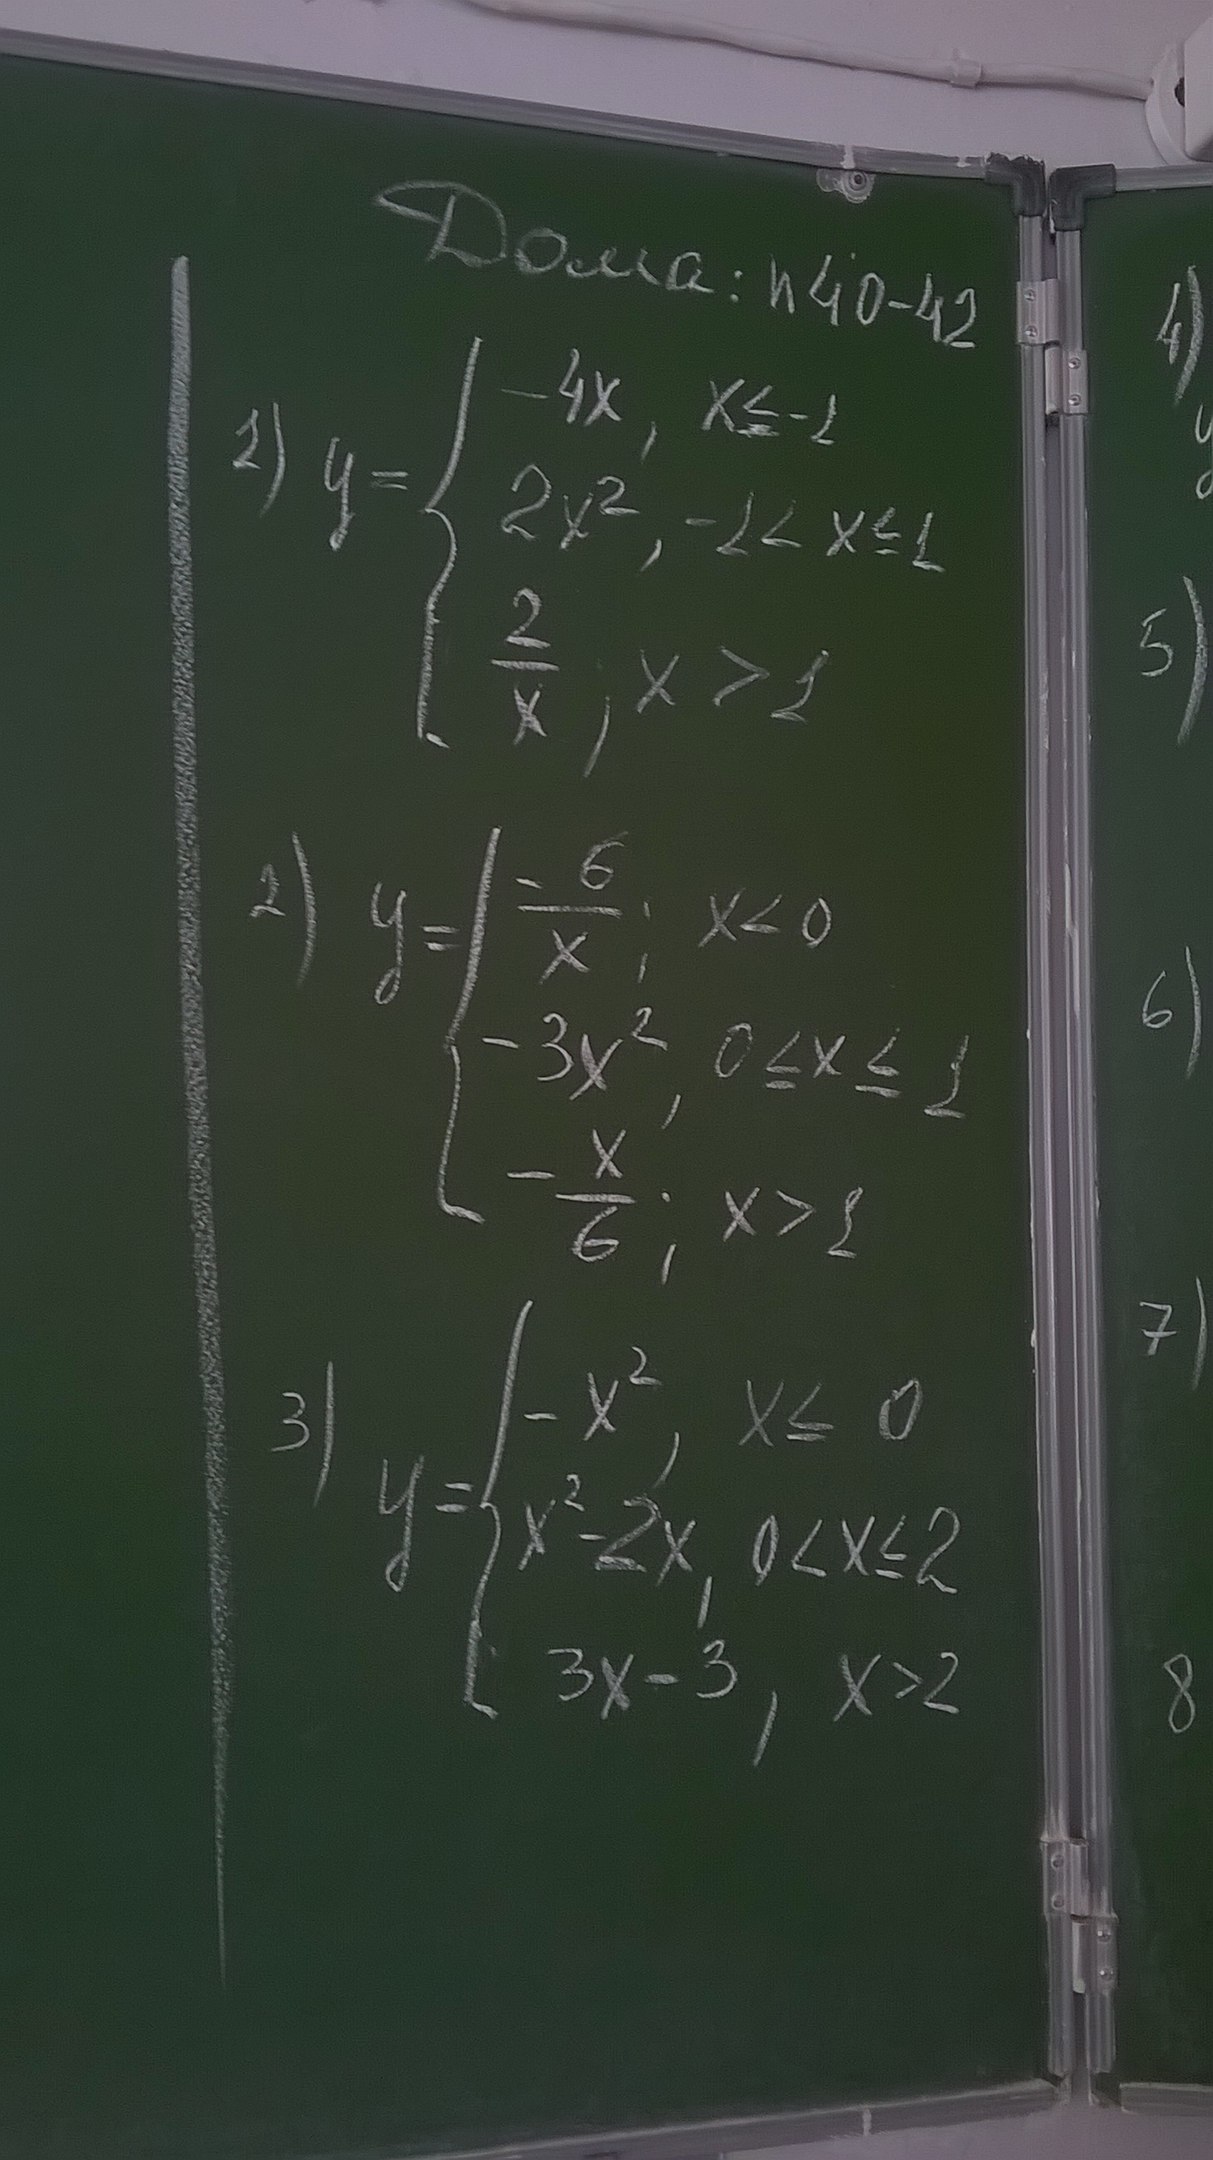 Дома: n40-42
1) y = { -4x, x ≤ -1
2x², -1 < x ≤ 1
2/x, x > 1
2) y = { -6/x; x < 0
-3x², 0 ≤ x ≤ 1
-x/6; x > 1
3) y = { -x², x ≤ 0
x² - 2x, 0 < x ≤ 2
3x - 3, x > 2
4)
y
5)
6)
7)
8